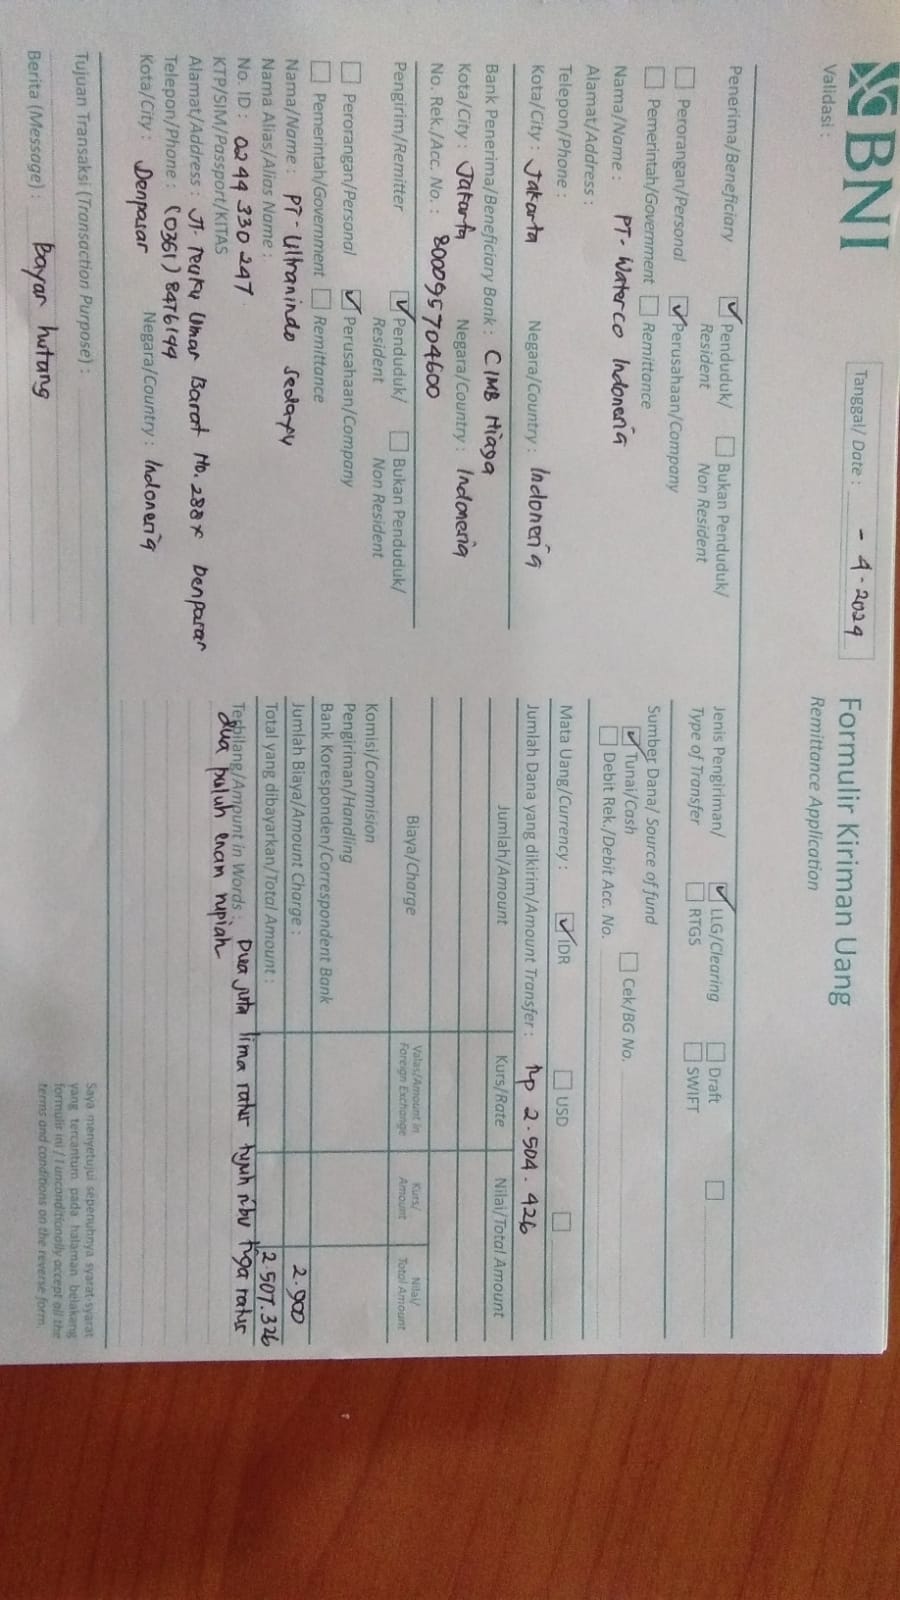 BNI
Formulir Kiriman Uang
Remittance Application
Validasi :
Tanggal/ Date : - 4 - 2024
Penerima/Beneficiary
Penduduk/ Resident
Bukan Penduduk/ Non Resident
Perorangan/Personal
Perusahaan/Company
Pemerintah/Government
Remittance
Nama/Name : PT. Waterco Indonesia
Alamat/Address :
Telepon/Phone :
Kota/City : Jakarta Negara/Country : Indonesia
Bank Penerima/Beneficiary Bank : CIMB Niaga
Kota/City : Jakarta Negara/Country : Indonesia
No. Rek./Acc. No. : 800095704600
Pengirim/Remitter
Penduduk/ Resident
Bukan Penduduk/ Non Resident
Perorangan/Personal
Perusahaan/Company
Pemerintah/Government
Remittance
Nama/Name : PT. Ultranindo Sedayu
Nama Alias/Alias Name :
No. ID : 0244 330 247
KTP/SIM/Passport/KITAS
Alamat/Address : Jl. Teuku Umar Barat No. 288x Denpasar
Telepon/Phone : (0361) 8476199
Kota/City : Denpasar Negara/Country : Indonesia
Tujuan Transaksi (Transaction Purpose) :
Berita (Message) : bayar hutang
Jenis Pengiriman/ Type of Transfer
LLG/Clearing
Draft
RTGS
SWIFT
Sumber Dana/ Source of fund
Tunai/Cash
Cek/BG No.
Debit Rek./Debit Acc. No.
Mata Uang/Currency : IDR USD
Jumlah Dana yang dikirim/Amount Transfer : Rp 2.504.426
Jumlah/Amount Kurs/Rate Nilai/Total Amount
Biaya/Charge Valas/Amount in Foreign Exchange Kurs/ Amount Nilai/ Total Amount
Komisi/Commision
Pengiriman/Handling
Bank Koresponden/Correspondent Bank
Jumlah Biaya/Amount Charge : 2.900
Total yang dibayarkan/Total Amount : 2.507.326
Terbilang/Amount in Words : Dua juta lima ratus tujuh ribu tiga ratus
dua puluh enam rupiah
Saya menyetujui sepenuhnya syarat-syarat
yang tercantum pada halaman belakang
formulir ini / I unconditionally accept all the
terms and conditions on the reverse form.